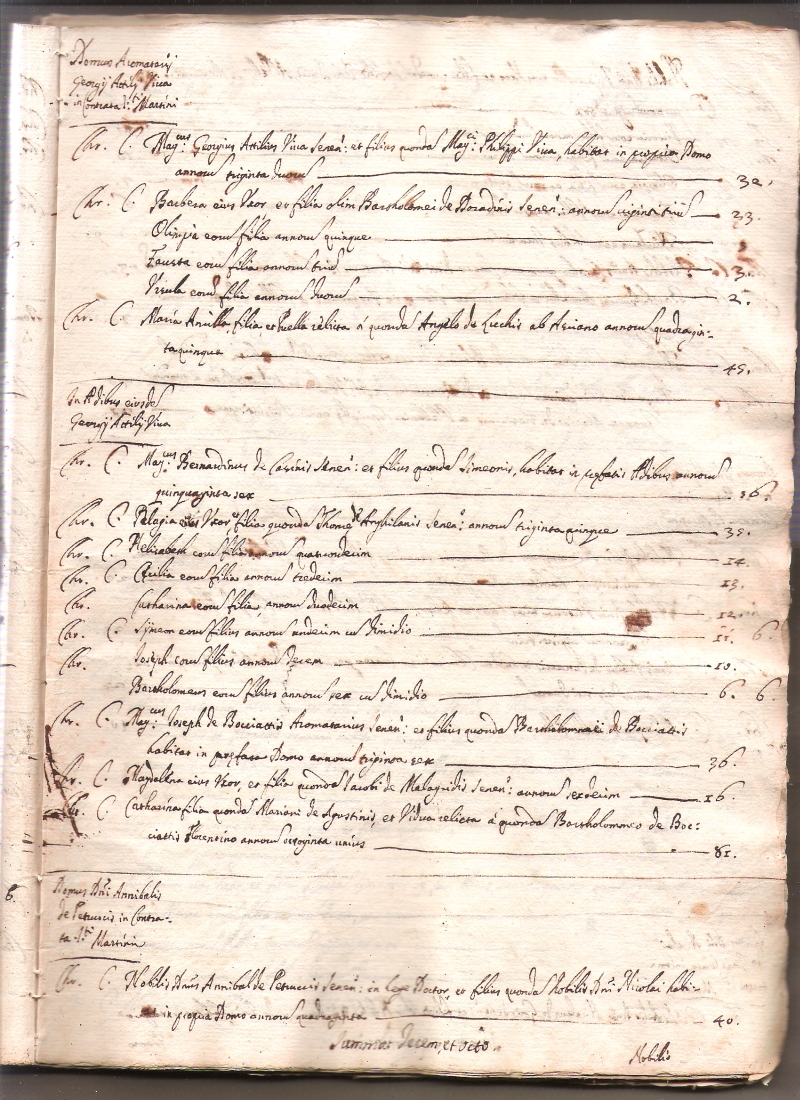 Domus Aromatarij
Georgij Actilij Viva
in Contrata S.ti Martini
Chr. C. Mag.cus Georgius Actilius Viva Senen: et filius quonda Mag.ci Philippi Viva, habitat in propria Domo
annorum triginta duorum 32.
Chr. C. Barbera eius Uxor et filia olim Bartholomei de Doradinis Senen: annorum viginti trium 23.
Olimpia eorum filia annorum quinque
Fausta eorum filia annorum trium 3.
Ursula eorum filia annorum duorum 2.
Chr. C. Maria Ancilla, filia et Puella relicta á quonda Angelo de Lucchis ab Asciano annorum quadragin-
taquinque 45.
In Ædibus eiusdem
Georgij Actilij Viva
Chr. C. Mag.cus Bernardinus de Senen: et filius quonda Simeonis, habitat in prefatis Ædibus annorum
quinquaginta sex 56.
Chr. C. Pelagia eius Uxor et filia quonda Thome Senen: annorum triginta quinque 35.
Chr. C. Helisabeth eorum filia annorum quatuordecim 14.
Chr. C. Cecilia eorum filia annorum tredecim 13.
Chr. Catharina eorum filia, annorum duodecim 12.
Chr. C. Symeon eorum filius annorum undecim cu dimidio 11. 6.
Chr. Joseph eorum filius annorum decem 10.
Bartholomeus eorum filius annorum sex cu dimidio 6. 6.
Chr. C. Mag.cus Joseph de Bocciattis Aromatarius Senen: et filius quonda Bartholommei de Bocciattis
habitat in prefata Domo annorum triginta sex 36.
Chr. C. Magdalena eius Uxor, et filia quonda Jacobi de Malagridis Senen: annorum sexdecim 16.
Chr. C. Catharina filia quonda Mariani de Agustinis, et Vidua relicta á quonda Bartholommeo de Boc-
ciattis Florentino annorum octoginta unius 81.
6.
Domus Dni Annibalis
de Petruccis in Contra-
ta S.ti Martini
Chr. C. Nobilis Dns Annibal de Petruccis Senen: in Lege Doctor, et filius quonda Nobilis Dni Nicolai habi-
tat in propria Domo annorum quadraginta 40.
Summat decem, et octo
Nobilis